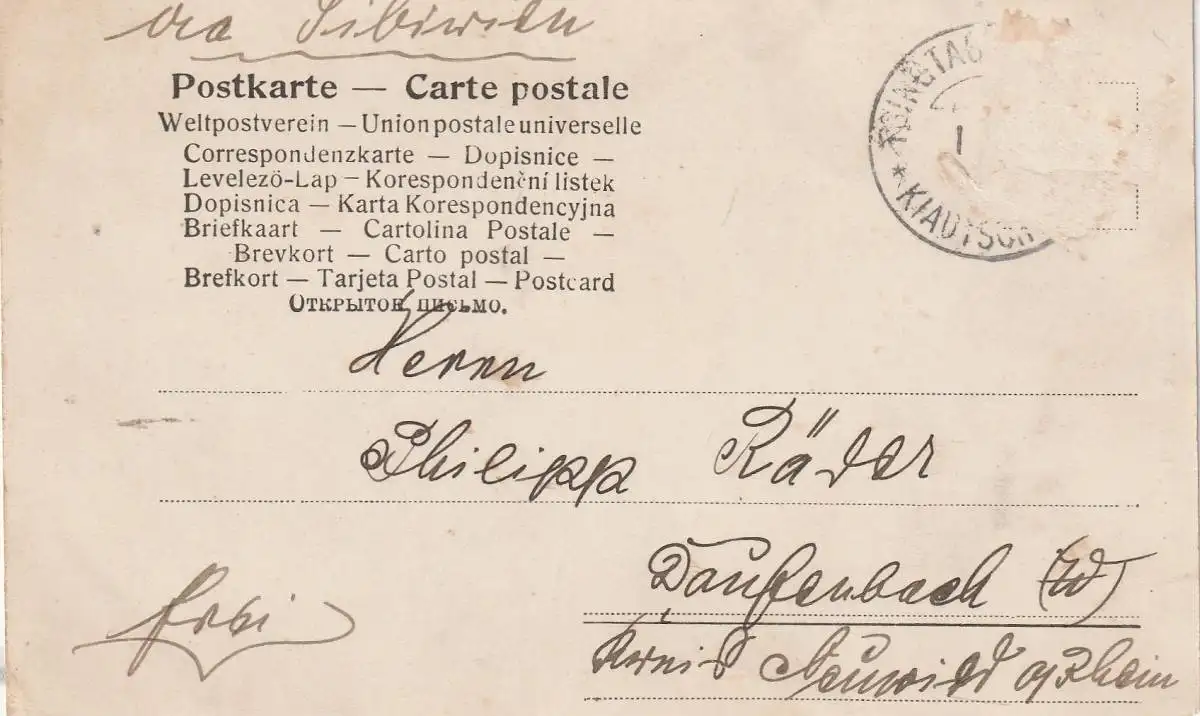 via Sibirien
Postkarte — Carte postale
Weltpostverein — Union postale universelle
Correspondenzkarte — Dopisnice —
Levelezö-Lap — Korespondenční listek
Dopisnica — Karta Korespondencyjna
Briefkaart — Cartolina Postale —
Brevkort — Carto postal —
Brefkort — Tarjeta Postal — Postcard
Открытое письмо.
TSINGTAU
* KIAUTSCH
Herrn
Philipp Räder
Daufenbach (W)
Kreis Neuwied a/Rhein